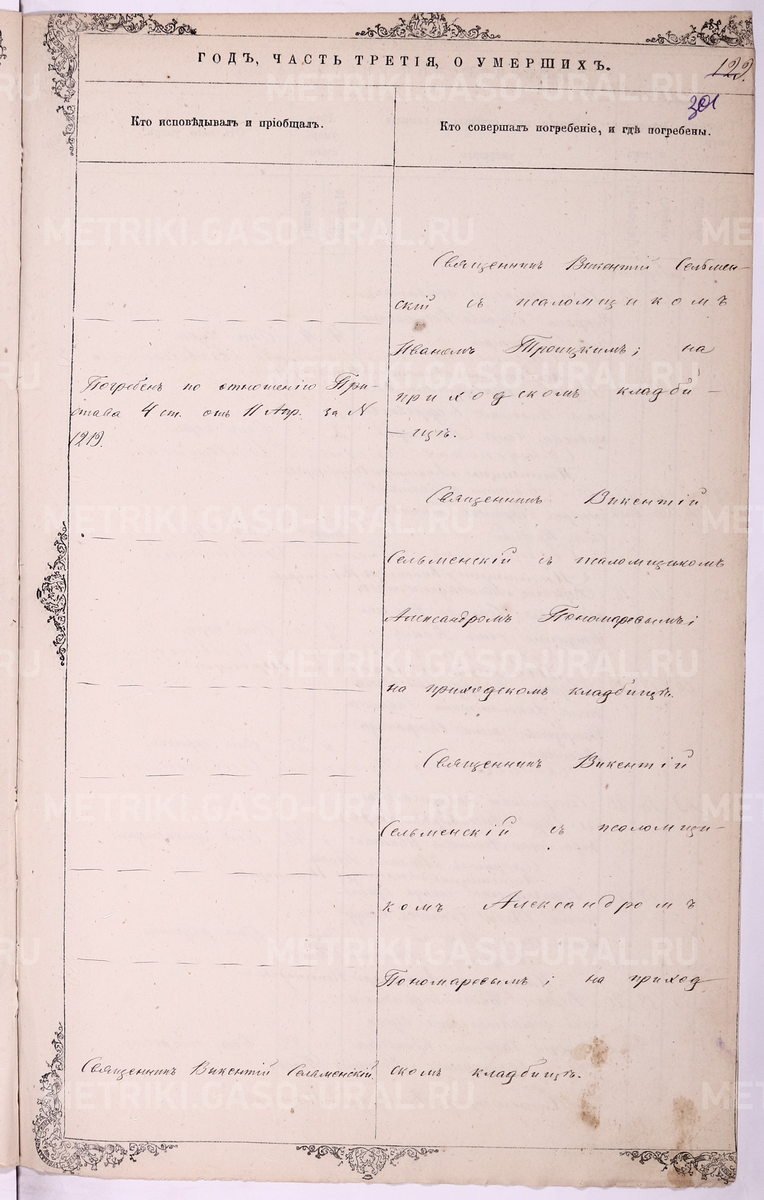 ГОДЪ, ЧАСТЬ ТРЕТІЯ, О УМЕРШИХЪ.
123.
301
Кто исповѣдывалъ и пріобщалъ.
Кто совершалъ погребеніе, и гдѣ погребены.
Погребенъ по отношенію При-
става 4 ст. отъ 11 Апр. за N
1219.
Священникъ Викентій Сельменскій.
Священникъ Викентій Сельмен-
скій съ псаломщикомъ
Иваномъ Троицкимъ; на
приходскомъ кладби-
щѣ.
Священникъ Викентій
Сельменскій съ псаломщикомъ
Александромъ Пономаревымъ;
на приходскомъ кладбищѣ.
Священникъ Викентій
Сельменскій съ псаломщи-
комъ Александромъ
Пономаревымъ; на приход
скомъ кладбищѣ.
METRIKI.GASO-URAL.RU